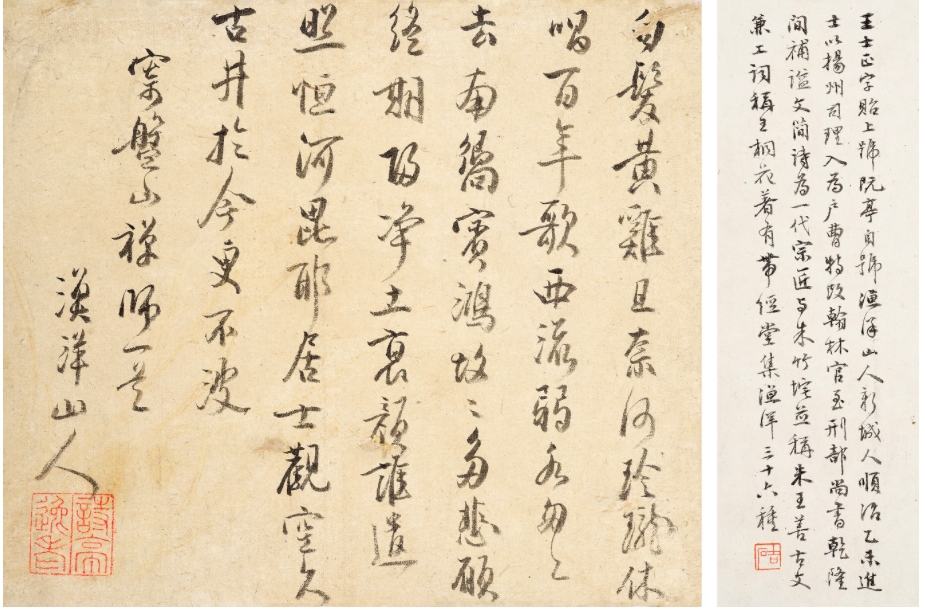 白髮黃雞且奈何玲瓏休
唱百年歌西流弱水匆〻
去南嚮賓鴻故〻多悲願
終期歸淨土衰顏誰遣
照恒河毘耶居士觀空久
古井於今更不波
寄盤山禪師一首
漁洋山人
詩亭
逸老
王士正字貽上號阮亭自號漁洋山人新城人順治乙未進
士以揚州司理入為戶曹特改翰林官至刑部尚書乾隆
間補謚文簡詩為一代宗匠与朱竹垞並稱朱王善古文
兼工詞稱王桐花著有帶經堂集漁洋三十六種